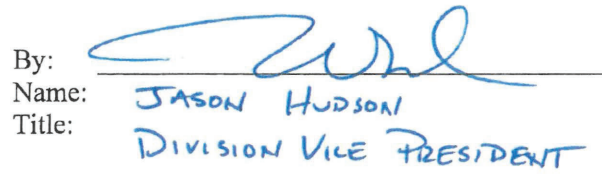 By:
Name: JASON HUDSON
Title: DIVISION VICE PRESIDENT